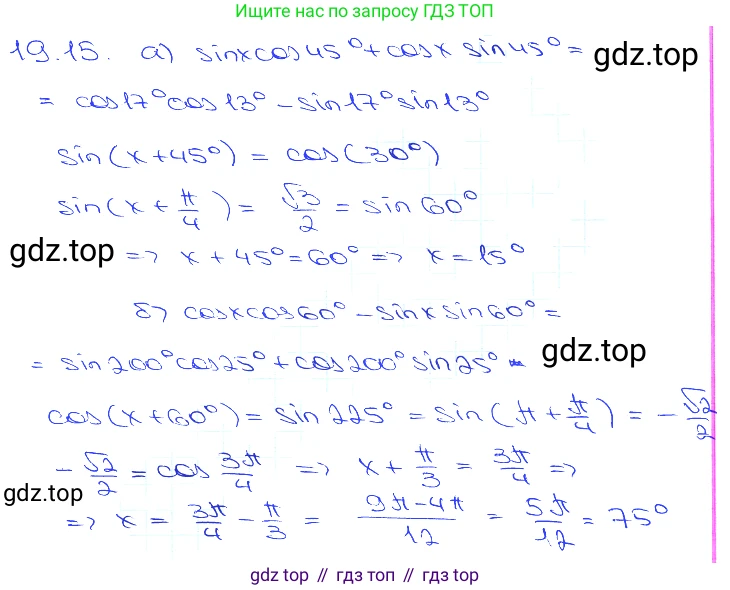 Ищите нас по запросу ГДЗ ТОП
19.15. а) sinxcos45°+cosx sin45°= gdz.top
= cos17°cos13° - sin17°sin13°
sin(x+45°) = cos(30°)
sin(x + π/4) = √3/2 = sin60°
gdz.top => x + 45° = 60° => x = 15°
б) cosxcos60° - sinxsin60° =
= sin200°cos25° + cos200°sin25° gdz.top
cos(x+60°) = sin225° = sin(π + π/4) = -√2/2
-√2/2 = cos 3π/4 => x + π/3 = 3π/4 =>
gdz.top
=> x = 3π/4 - π/3 = 9π-4π/12 = 5π/12 = 75°
gdz top // гдз топ // gdz top